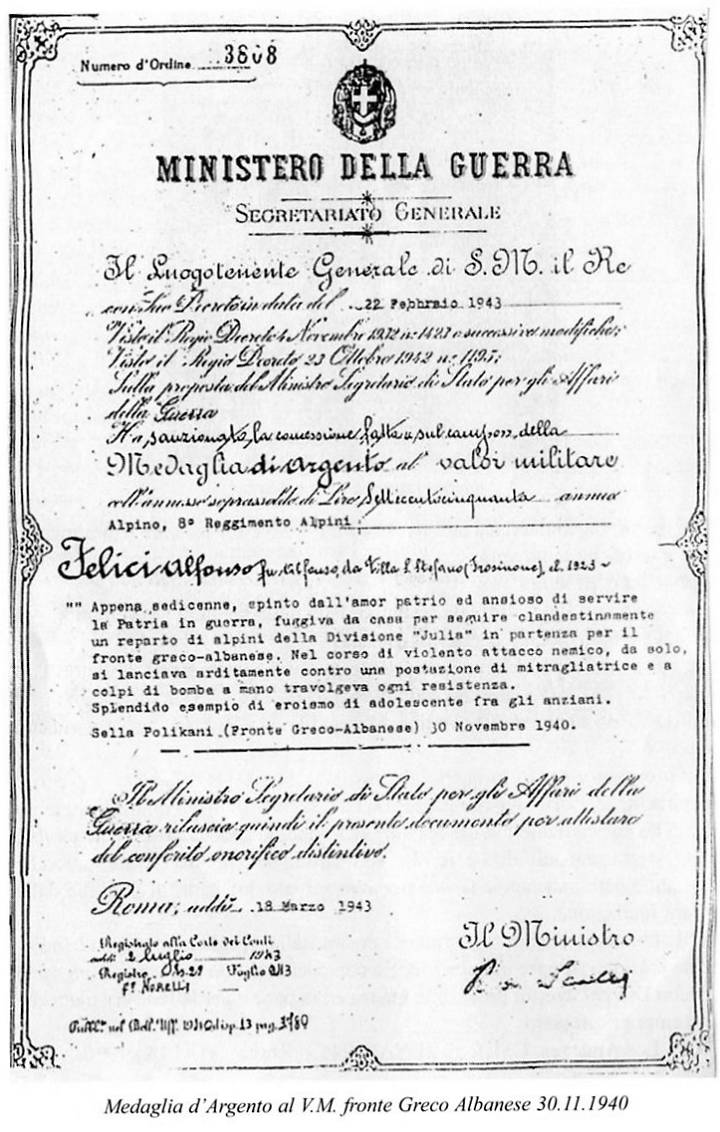 Numero d'Ordine 3808
MINISTERO DELLA GUERRA
SEGRETARIATO GENERALE
Il Luogotenente Generale di S.M. il Re
con Suo Decreto in data del 22 Febbraio 1943
Visto il Regio Decreto 4 Novembre 1932 n. 1423 e successive modifiche;
Visto il Regio Decreto 23 Ottobre 1942 n. 1195;
Sulla proposta del Ministro Segretario di Stato per gli Affari
della Guerra
Ha sanzionata la concessione fatta sul campo della
Medaglia di Argento al valor militare
coll'annesso soprassoldo di Lire Settecentocinquanta annue
Alpino, 8° Reggimento Alpini
Felici Alfonso fu Alfonso, da Villa S. Stefano (Frosinone) cl. 1923
"" Appena sedicenne, spinto dall'amor patrio ed ansioso di servire
la Patria in guerra, fuggiva da casa per seguire clandestinamente
un reparto di alpini della Divisione "Julia" in partenza per il
fronte greco-albanese. Nel corso di violento attacco nemico, da solo,
si lanciava arditamente contro una postazione di mitragliatrice e a
colpi di bomba a mano travolgeva ogni resistenza.
Splendido esempio di eroismo di adolescente fra gli anziani.
Sella Polikani (Fronte Greco-Albanese) 30 Novembre 1940.
Il Ministro Segretario di Stato per gli Affari della
Guerra rilascia quindi il presente documento per attestare
del conferito onorifico distintivo.
Roma, addì 18 Marzo 1943
Registrato alla Corte dei Conti
addì 2 Luglio 1943
Registro Foglio
Il Ministro
Medaglia d'Argento al V.M. fronte Greco Albanese 30.11.1940